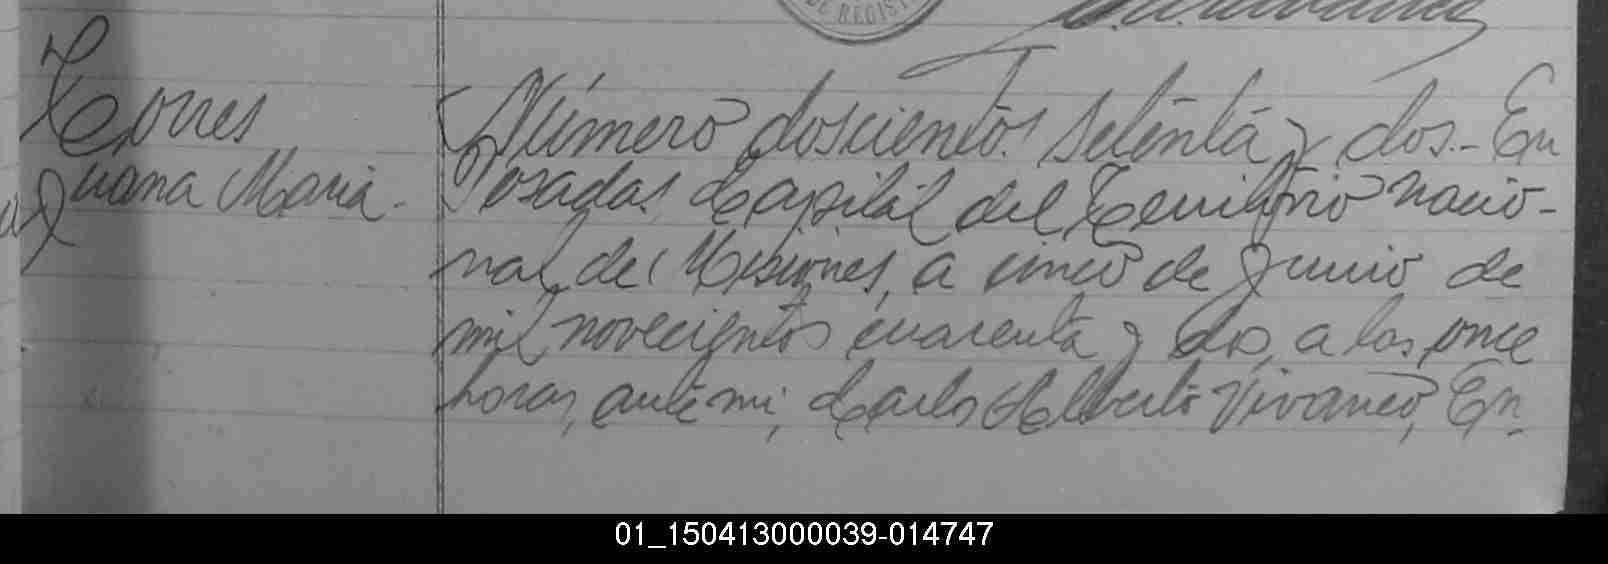 DE REGIS
Torres
Juana Maria.-
Número doscientos setenta y dos.- En
Posadas Capital del Territorio nacio-
nal de Misiones, a cinco de Junio de
mil novecientos cuarenta y dos, a las once
horas, ante mi, Carlos Alberto Vivanco, En-
01_150413000039-014747